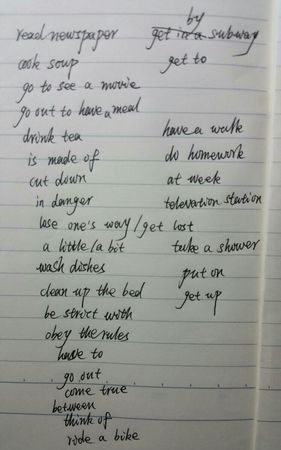 read newspaper
cook soup
go to see a movie
go out to have a meal
drink tea
is made of
cut down
in danger
lose one's way / get lost
a little / a bit
wash dishes
clean up the bed
be strict with
obey the rules
have to
go out
come true
between
think of
ride a bike
by
get in a subway
get to
have a walk
do homework
at week
televation station
take a shower
put on
get up